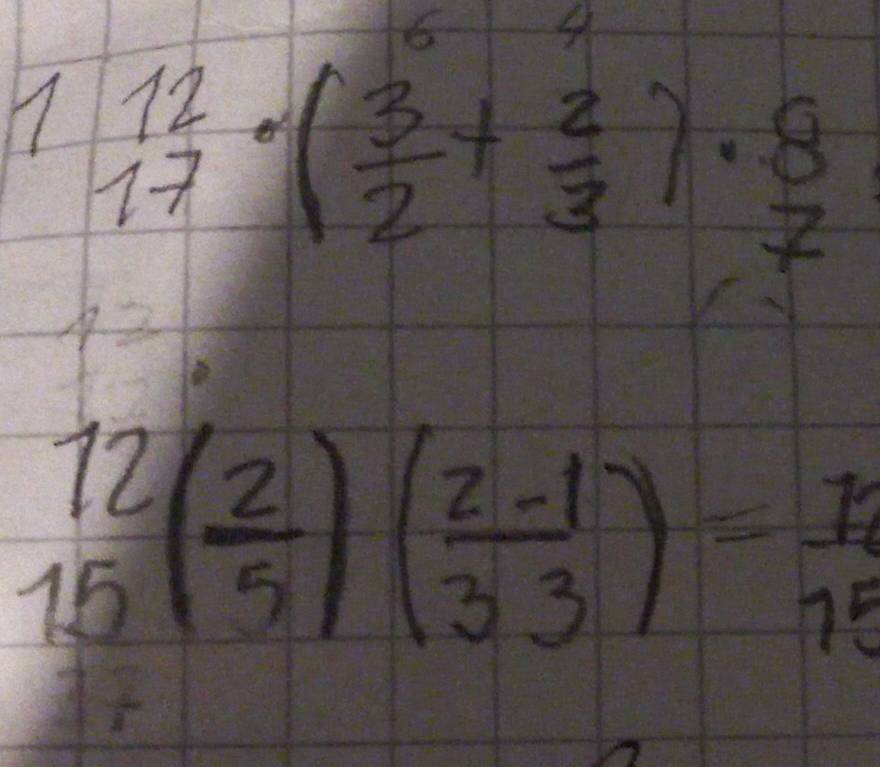 6 4
1 12/17 · (3/2 + 2/3) · 8/7
12/15 (2/5) (2/3 - 1/3) = 12/15